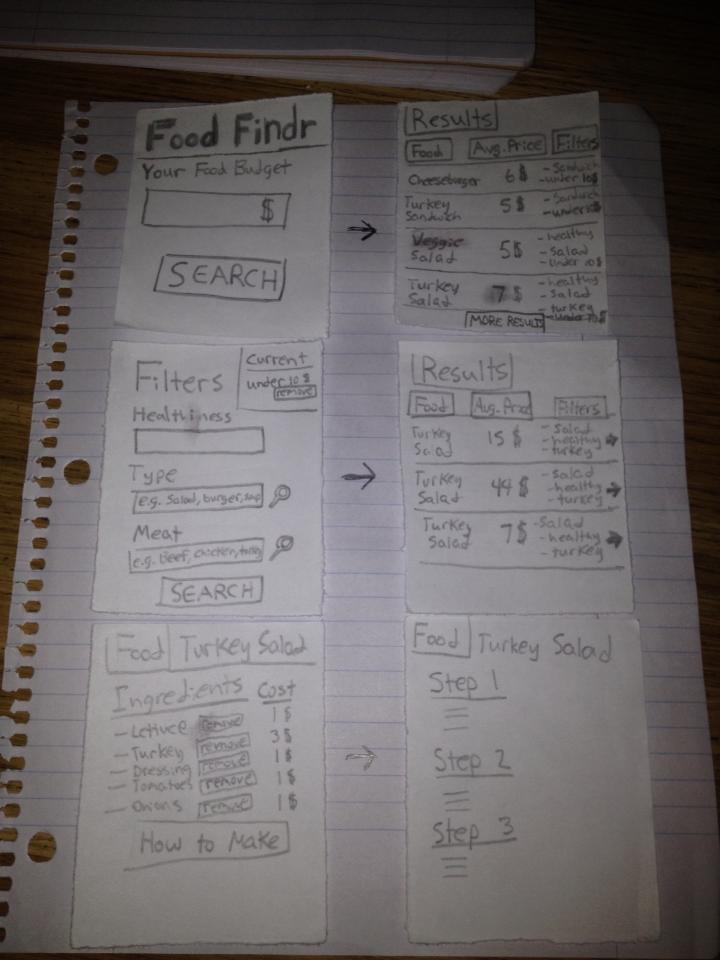 Food Findr
Your Food Budget
$
SEARCH
Results
Food Avg. Price Filters
Cheeseburger 6$ - Sandwich
- under 10$
Turkey 5$ - Sandwich
Sandwich - under 10$
Veggie 5$ - healthy
Salad - Salad
- under 10$
Turkey 7$ - healthy
Salad - Salad
- turkey
- under 10$
MORE RESULTS
Filters
Current
under 10$
remove
Healthiness
Type
e.g. Salad, burger, soup
Meat
e.g. Beef, chicken, turkey
SEARCH
Results
Food Avg. Price Filters
Turkey 15$ - Salad
Salad - healthy
- turkey
Turkey 44$ - salad
Salad - healthy
- turkey
Turkey 7$ - Salad
Salad - healthy
- turkey
Food Turkey Salad
Ingredients Cost
- Lettuce remove 1$
- Turkey remove 3$
- Dressing remove 1$
- Tomatoes remove 1$
- Onions remove 1$
How to Make
Food Turkey Salad
Step 1
Step 2
Step 3